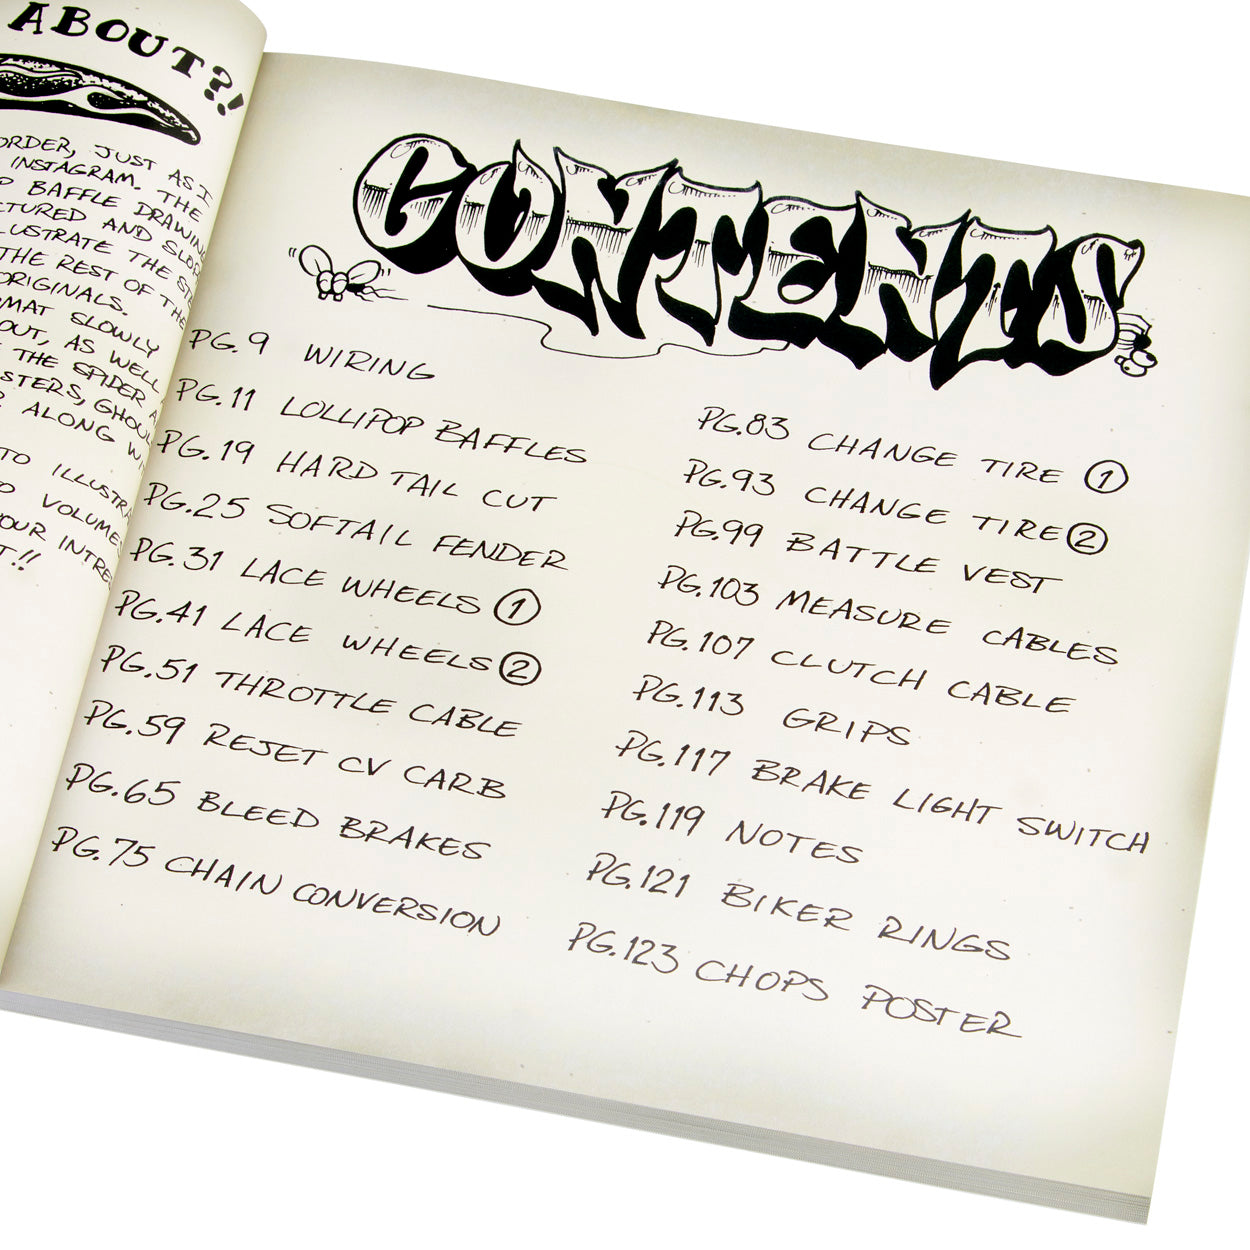 ABOUT?!
ORDER, JUST AS I
INSTAGRAM. THE
BAFFLE DRAWING
AND
THE
THE REST OF THE
ORIGINALS.
SLOWLY
OUT, AS WELL
THE SPIDER
ALONG
TO
VOLUME
YOUR
CONTENTS
PG. 9 WIRING
PG. 11 LOLLIPOP BAFFLES
PG. 19 HARD TAIL CUT
PG. 25 SOFTAIL FENDER
PG. 31 LACE WHEELS 1
PG. 41 LACE WHEELS 2
PG. 51 THROTTLE CABLE
PG. 59 REJET CV CARB
PG. 65 BLEED BRAKES
PG. 75 CHAIN CONVERSION
PG. 83 CHANGE TIRE 1
PG. 93 CHANGE TIRE 2
PG. 99 BATTLE VEST
PG. 103 MEASURE CABLES
PG. 107 CLUTCH CABLE
PG. 113 GRIPS
PG. 117 BRAKE LIGHT SWITCH
PG. 119 NOTES
PG. 121 BIKER RINGS
PG. 123 CHOPS POSTER